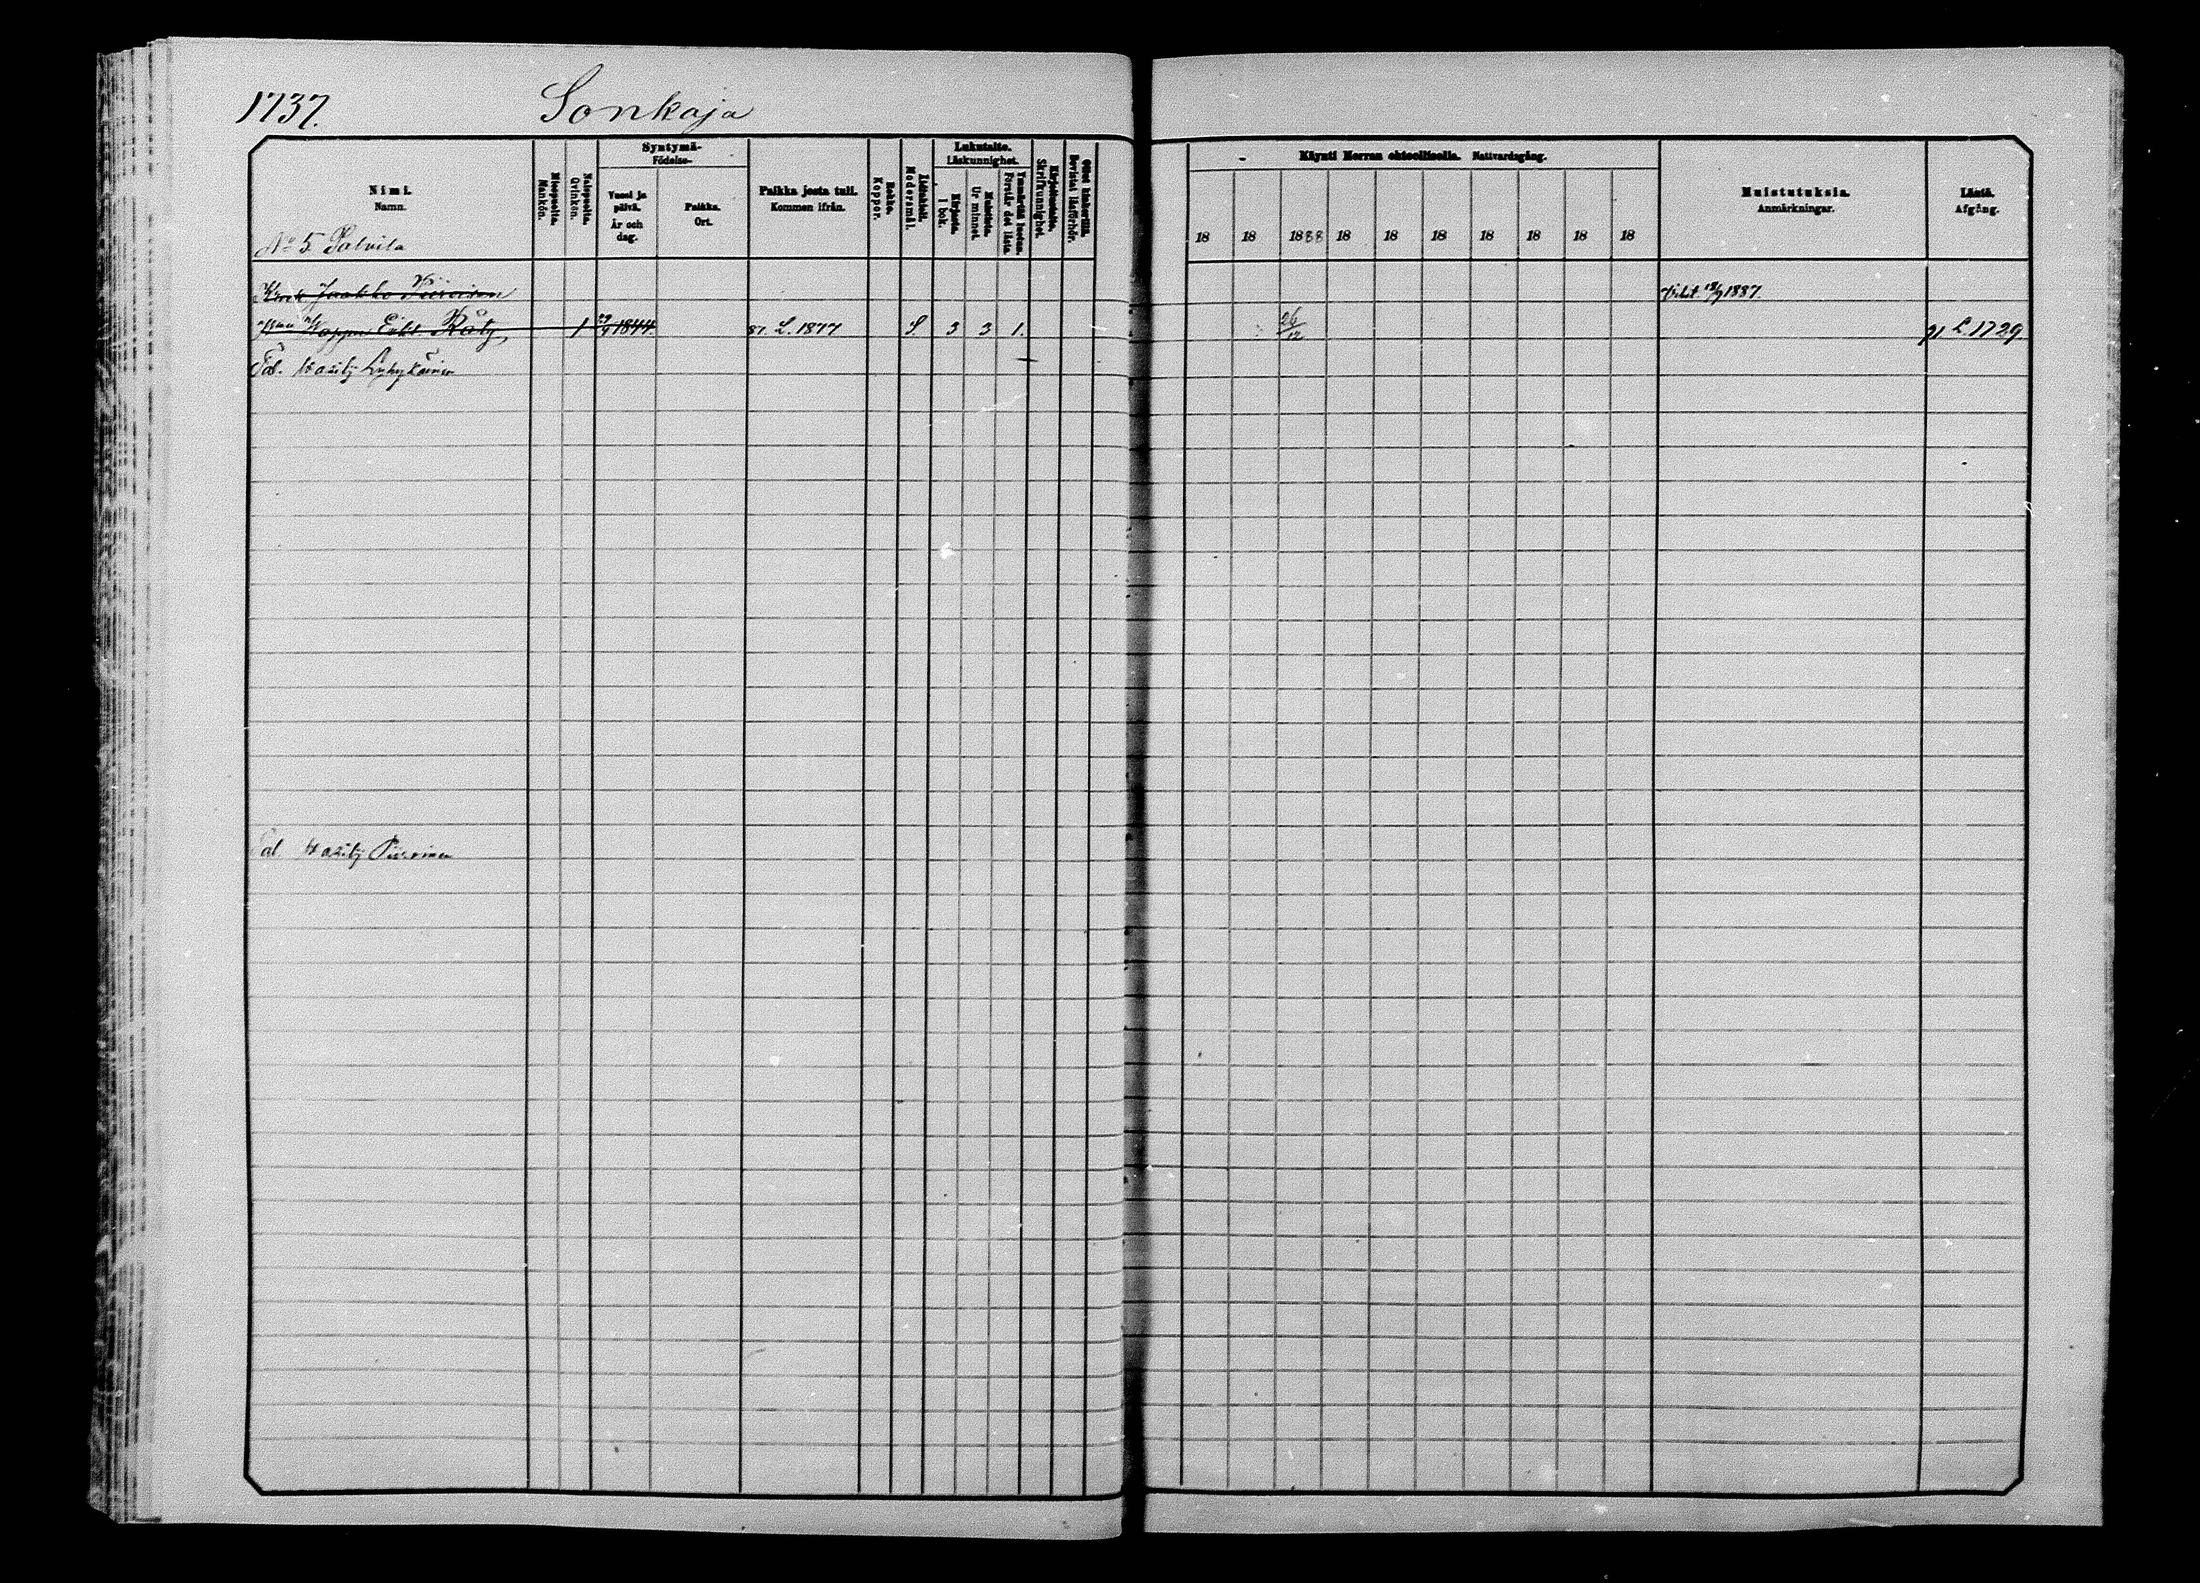 1737. Sonkaja
Nimi.
Namn.
Miespuolia.
Mankön.
Naispuolia.
Qvinkön.
Syntymä-
Födelse-
Vuosi ja päivä.
År och dag.
Paikka.
Ort.
Paikka josta tuli.
Kommen ifrån.
Rokko.
Koppor.
Äidinkieli.
Modersmål.
Lukutaito.
Läskunnighet.
Kirjasta.
I bok.
Muistista.
Ur minnet.
Ymmärtää luetun.
Förstår det lästa
Kirjoitustaito.
Skrifkunnighet.
Ollut kinkerillä.
Bevistat läsförhör.
Käynti Herran ehtoollisella. Nattvardsgång.
18 18 1888 18 18 18 18 18 18 18
Muistutuksia.
Anmärkningar.
Lästä.
Afgång.
No 5
Jaakko Piiroinen 1887.
Räty 1 1844 87. L. 1877 S 3 3 1. 26/12 91 L. 1739.
Tal. Wasilij Lyhykäinen
Tal. Wasilij Piiroinen